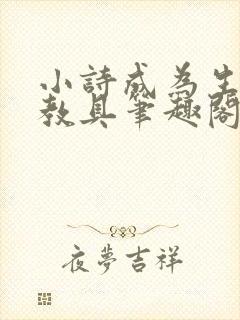 小詩成為生
教具筆趣閣
夜夢吉祥